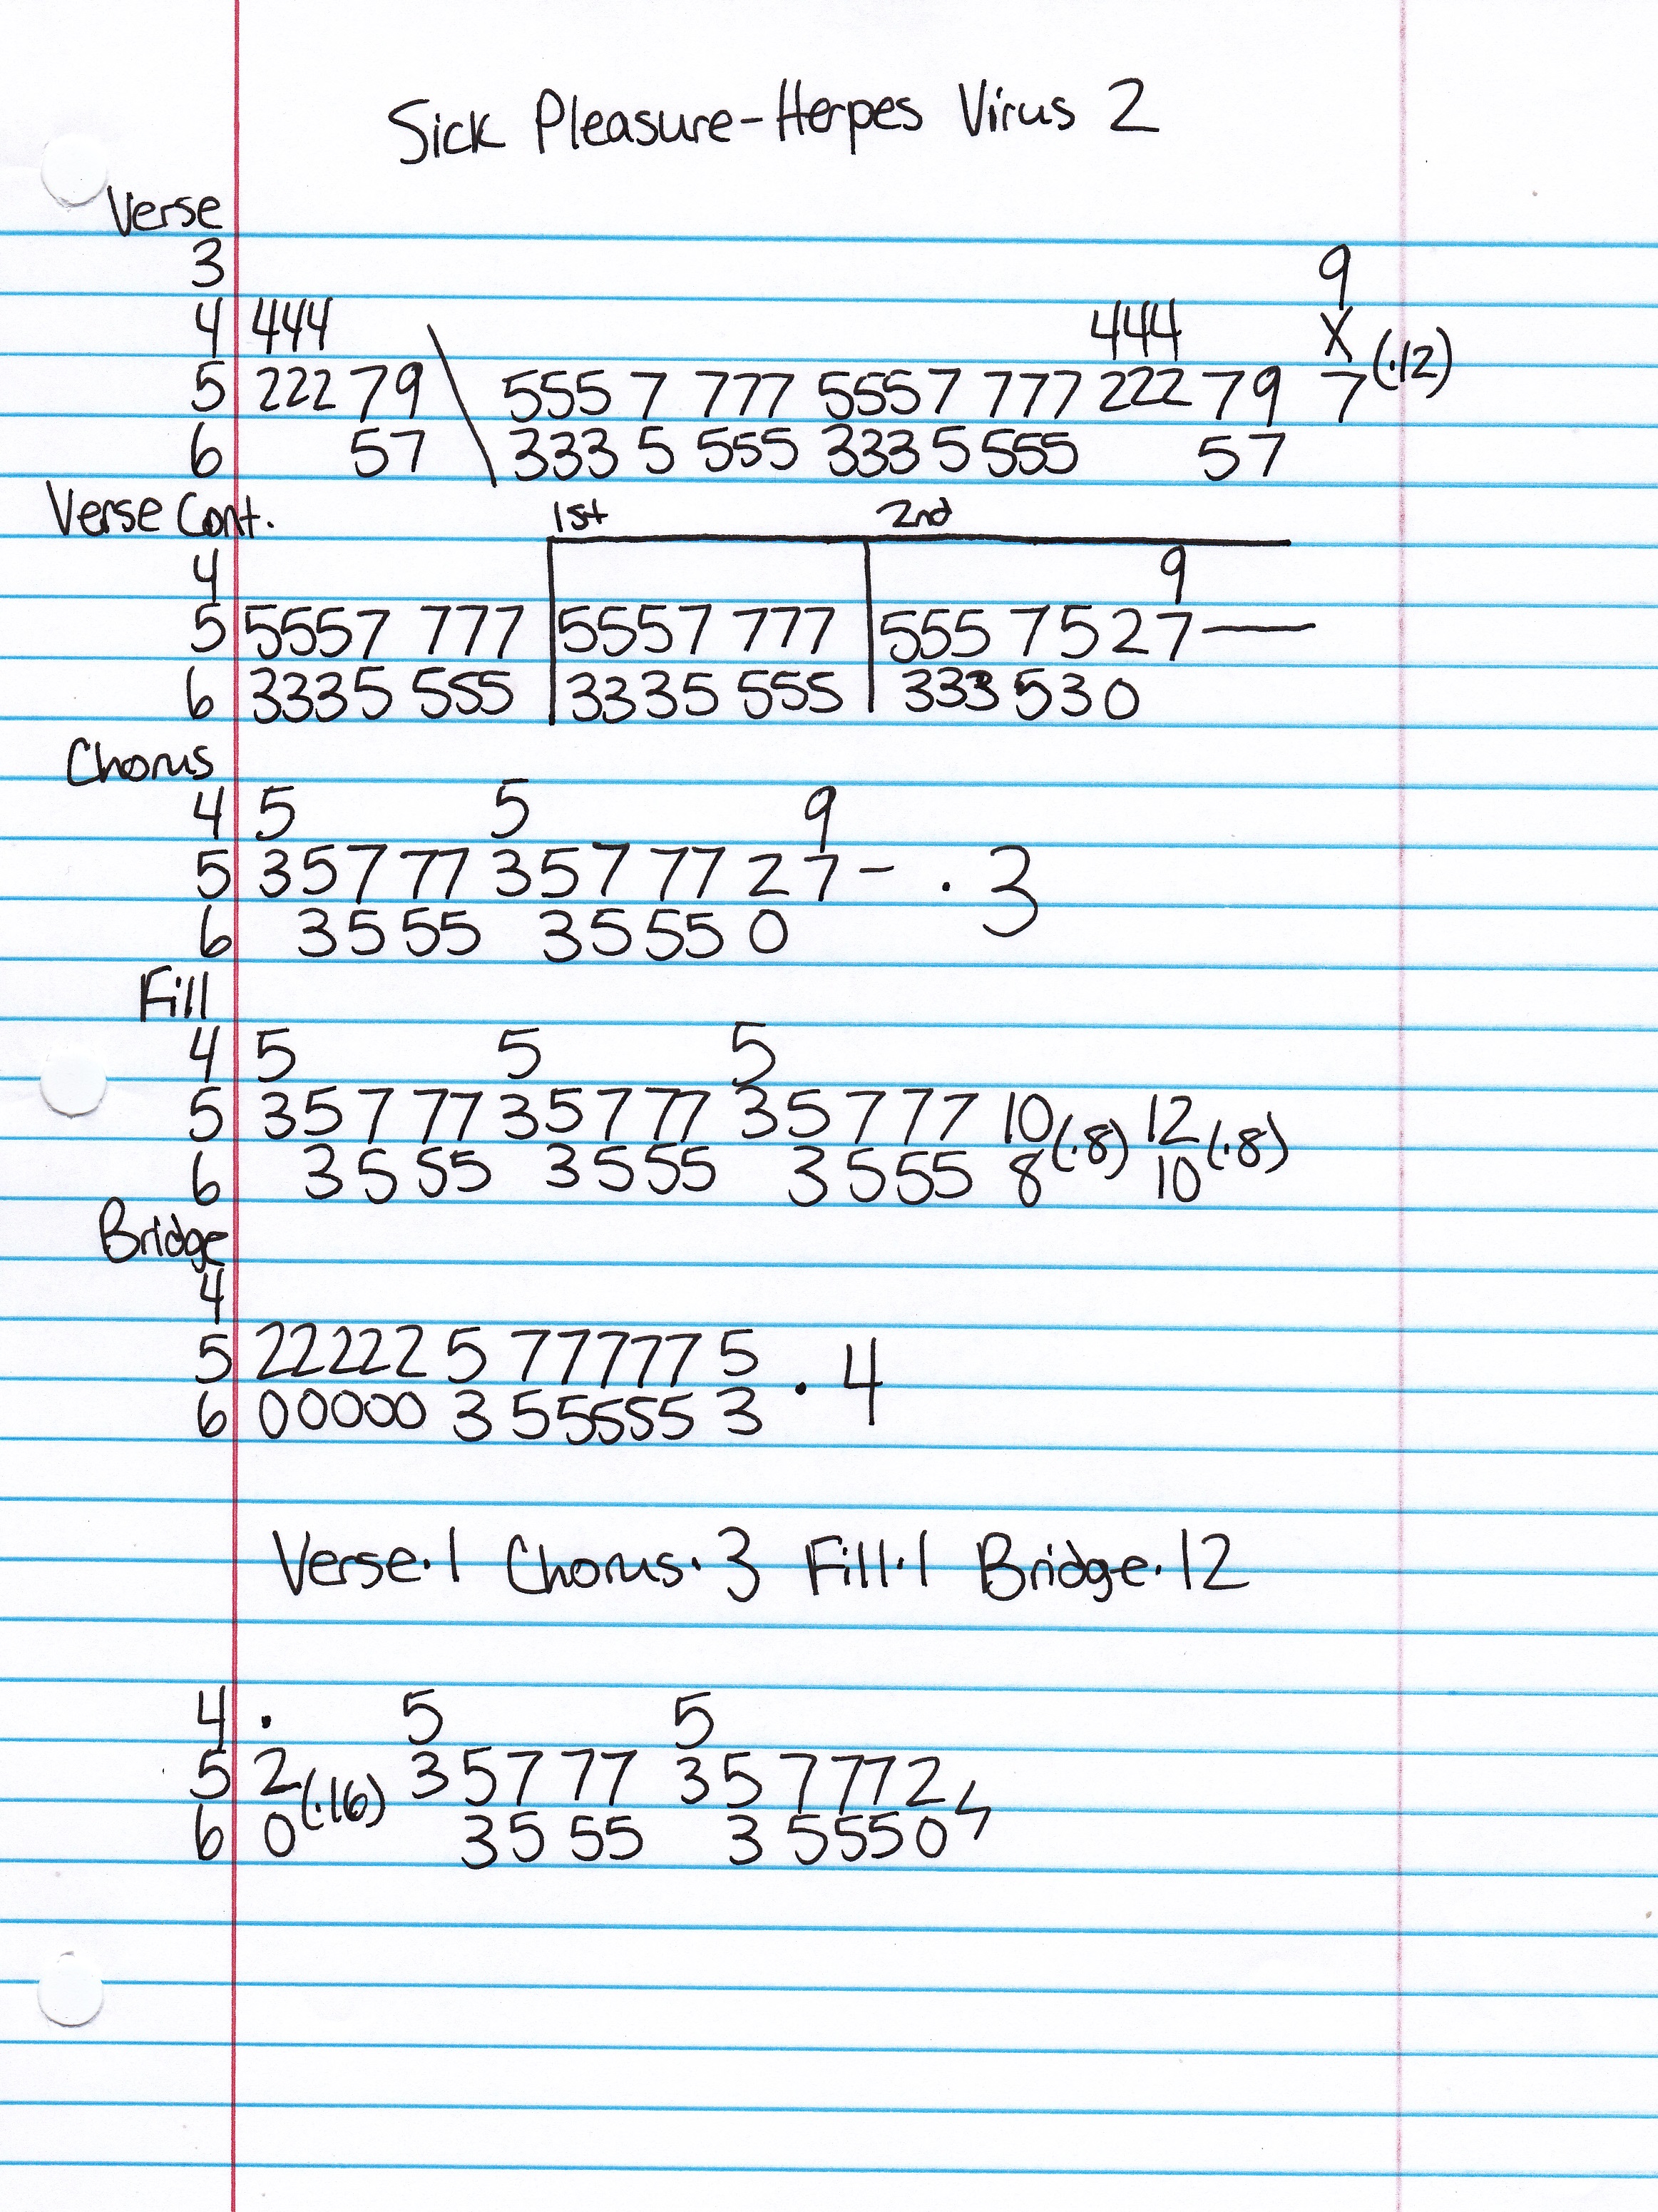 Sick Pleasure-Herpes Virus 2
Verse
3 9
4 444 444 X
5 222 79 \ 555 7 777 5557 777 222 79 7 (·12)
6 57 333 5 555 333 5 555 57
Verse Cont. 1st 2nd
4 9
5 5557 777 | 5557 777 | 555 7 5 2 7—
6 3335 555 | 3335 555 | 333 5 3 0
Chorus
4 5 5 9
5 357 77 357 77 2 7 - · 3
6 35 55 35 55 0
Fill
4 5 5 5
5 357 77 357 77 357 77 10 (·8) 12 (·8)
6 35 55 35 55 3 5 55 8 10
Bridge
4
5 22222 5 77777 5 · 4
6 00000 3 55555 3
Verse·1 Chorus·3 Fill·1 Bridge·12
4 · 5 5
5 2 (·16) 357 77 357 77 2
6 0 35 55 3 555 0